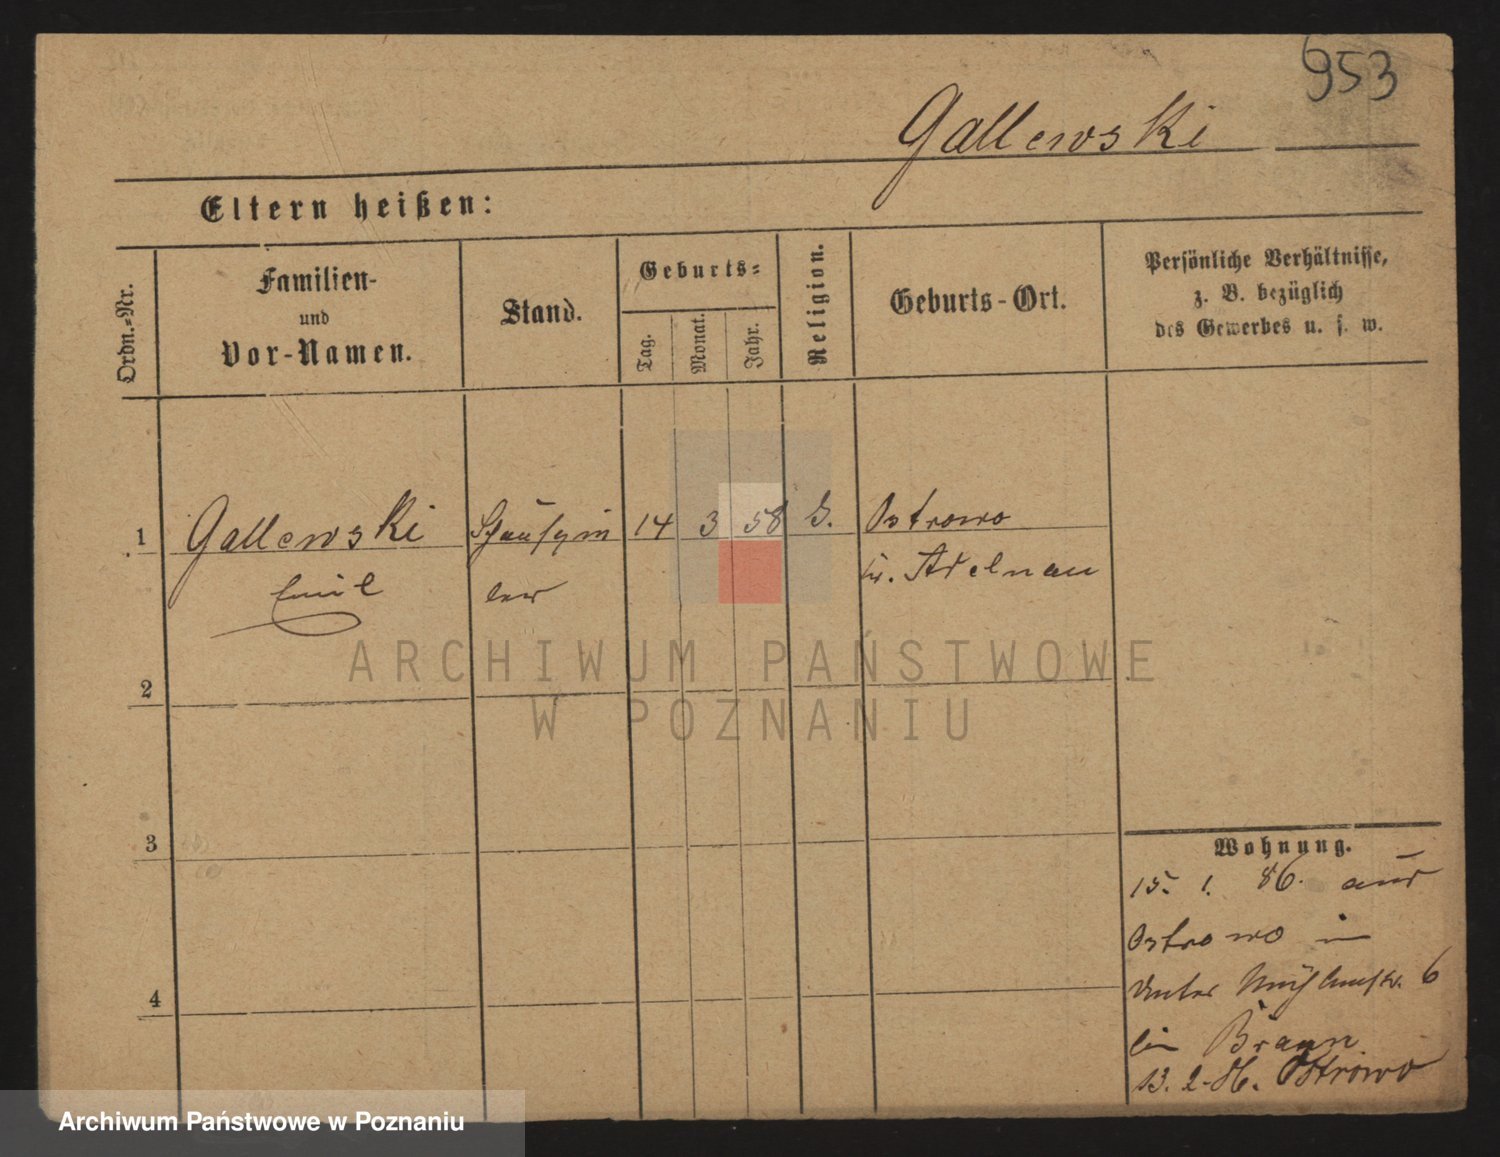 953
Gallewski
Eltern heißen:
Ordn.-Nr.
Familien-
und
Vor-Namen.
Stand.
Geburts-
Tag.
Monat.
Jahr.
Religion.
Geburts-Ort.
Persönliche Verhältnisse,
z. B. bezüglich
des Gewerbes u. s. w.
1
Gallewski
Emil
14
3
58
Ostrowo
Adelnau
2
3
4
Wohnung.
15. 1. 86. aus
Ostrowo in
Unter Mühlenstr. 6
bei Braun
13. 2. 86. Ostrowo
ARCHIWUM PAŃSTWOWE
W POZNANIU
Archiwum Państwowe w Poznaniu